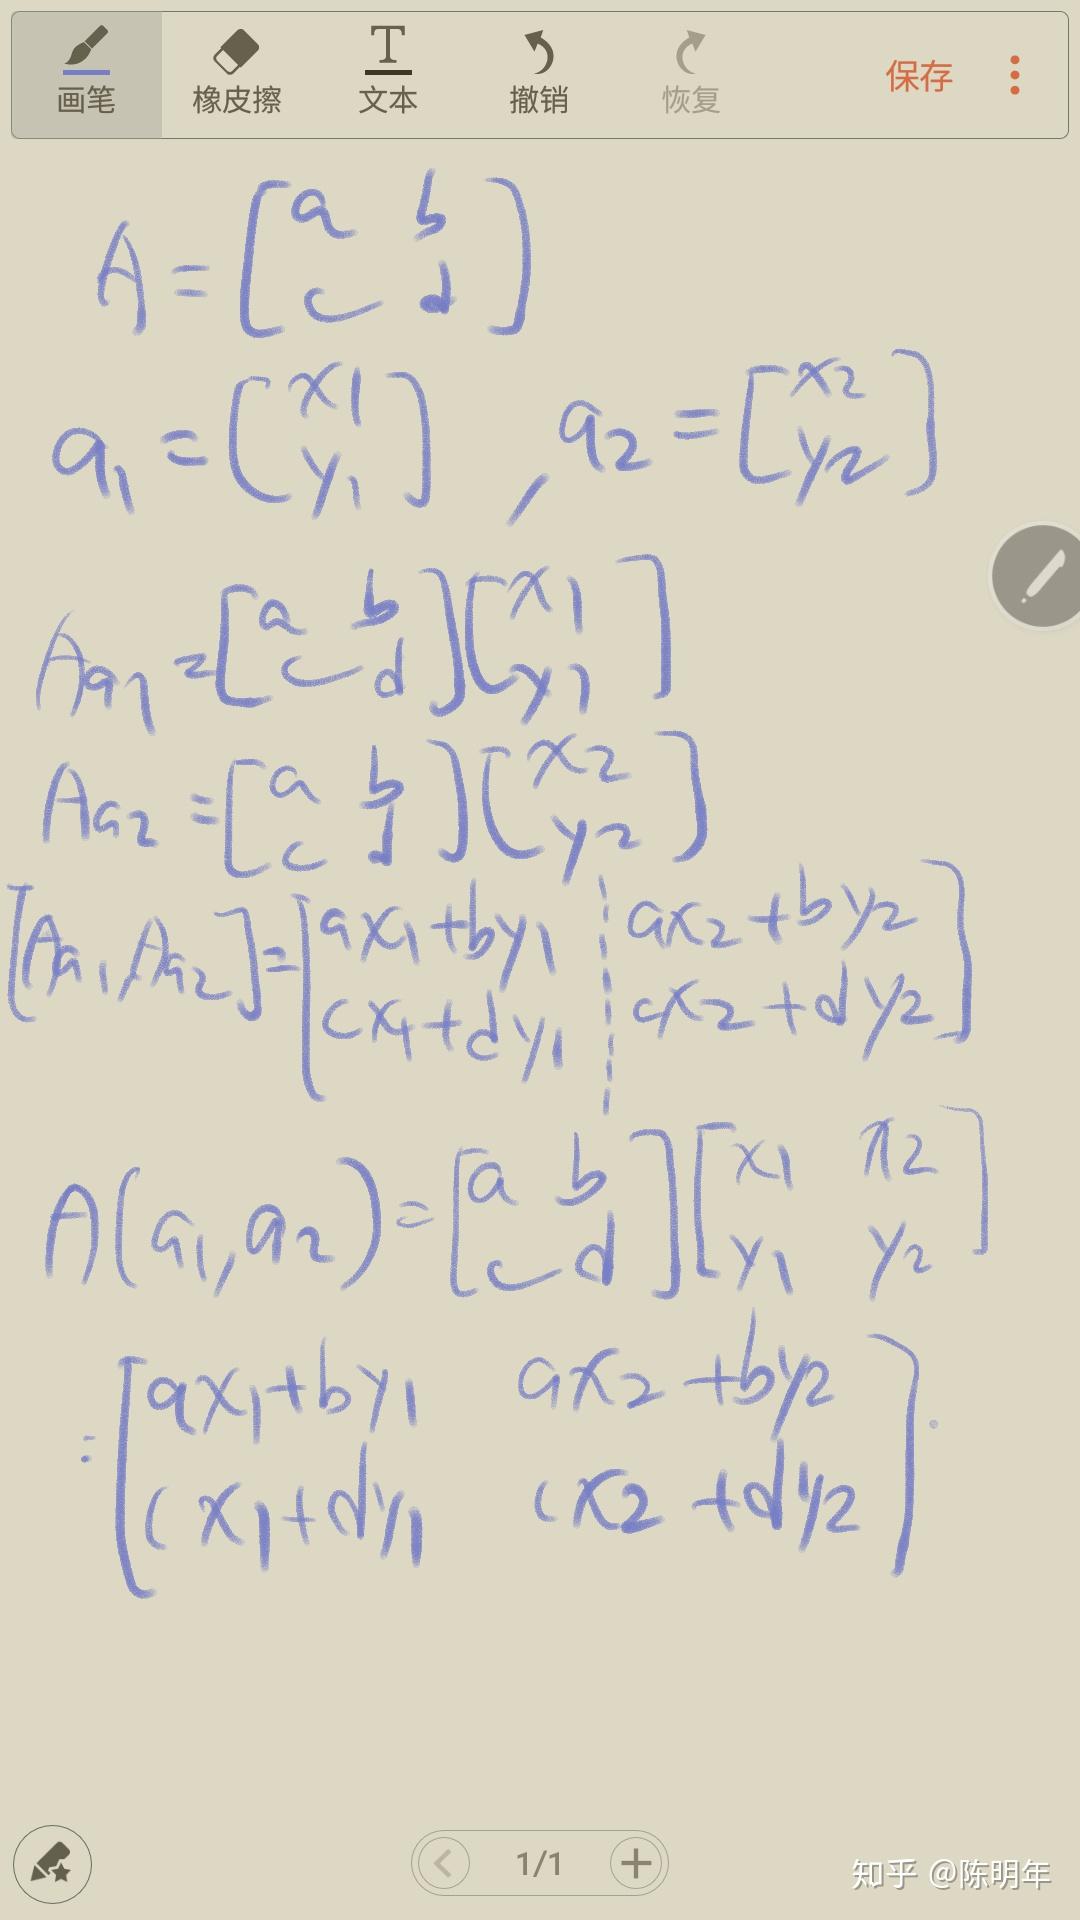 画笔 橡皮擦 文本 撤销 恢复 保存
A = [a b
c d]
a1 = [x1
y1] , a2 = [x2
y2]
Aa1 = [a b
c d] [x1
y1]
Aa2 = [a b
c d] [x2
y2]
[Aa1, Aa2] = [ax1+by1 ¦ ax2+by2
cx1+dy1 ¦ cx2+dy2]
A(a1, a2) = [a b
c d] [x1 x2
y1 y2]
= [ax1+by1 ax2+by2
cx1+dy1 cx2+dy2].
1/1
知乎 @陈明年